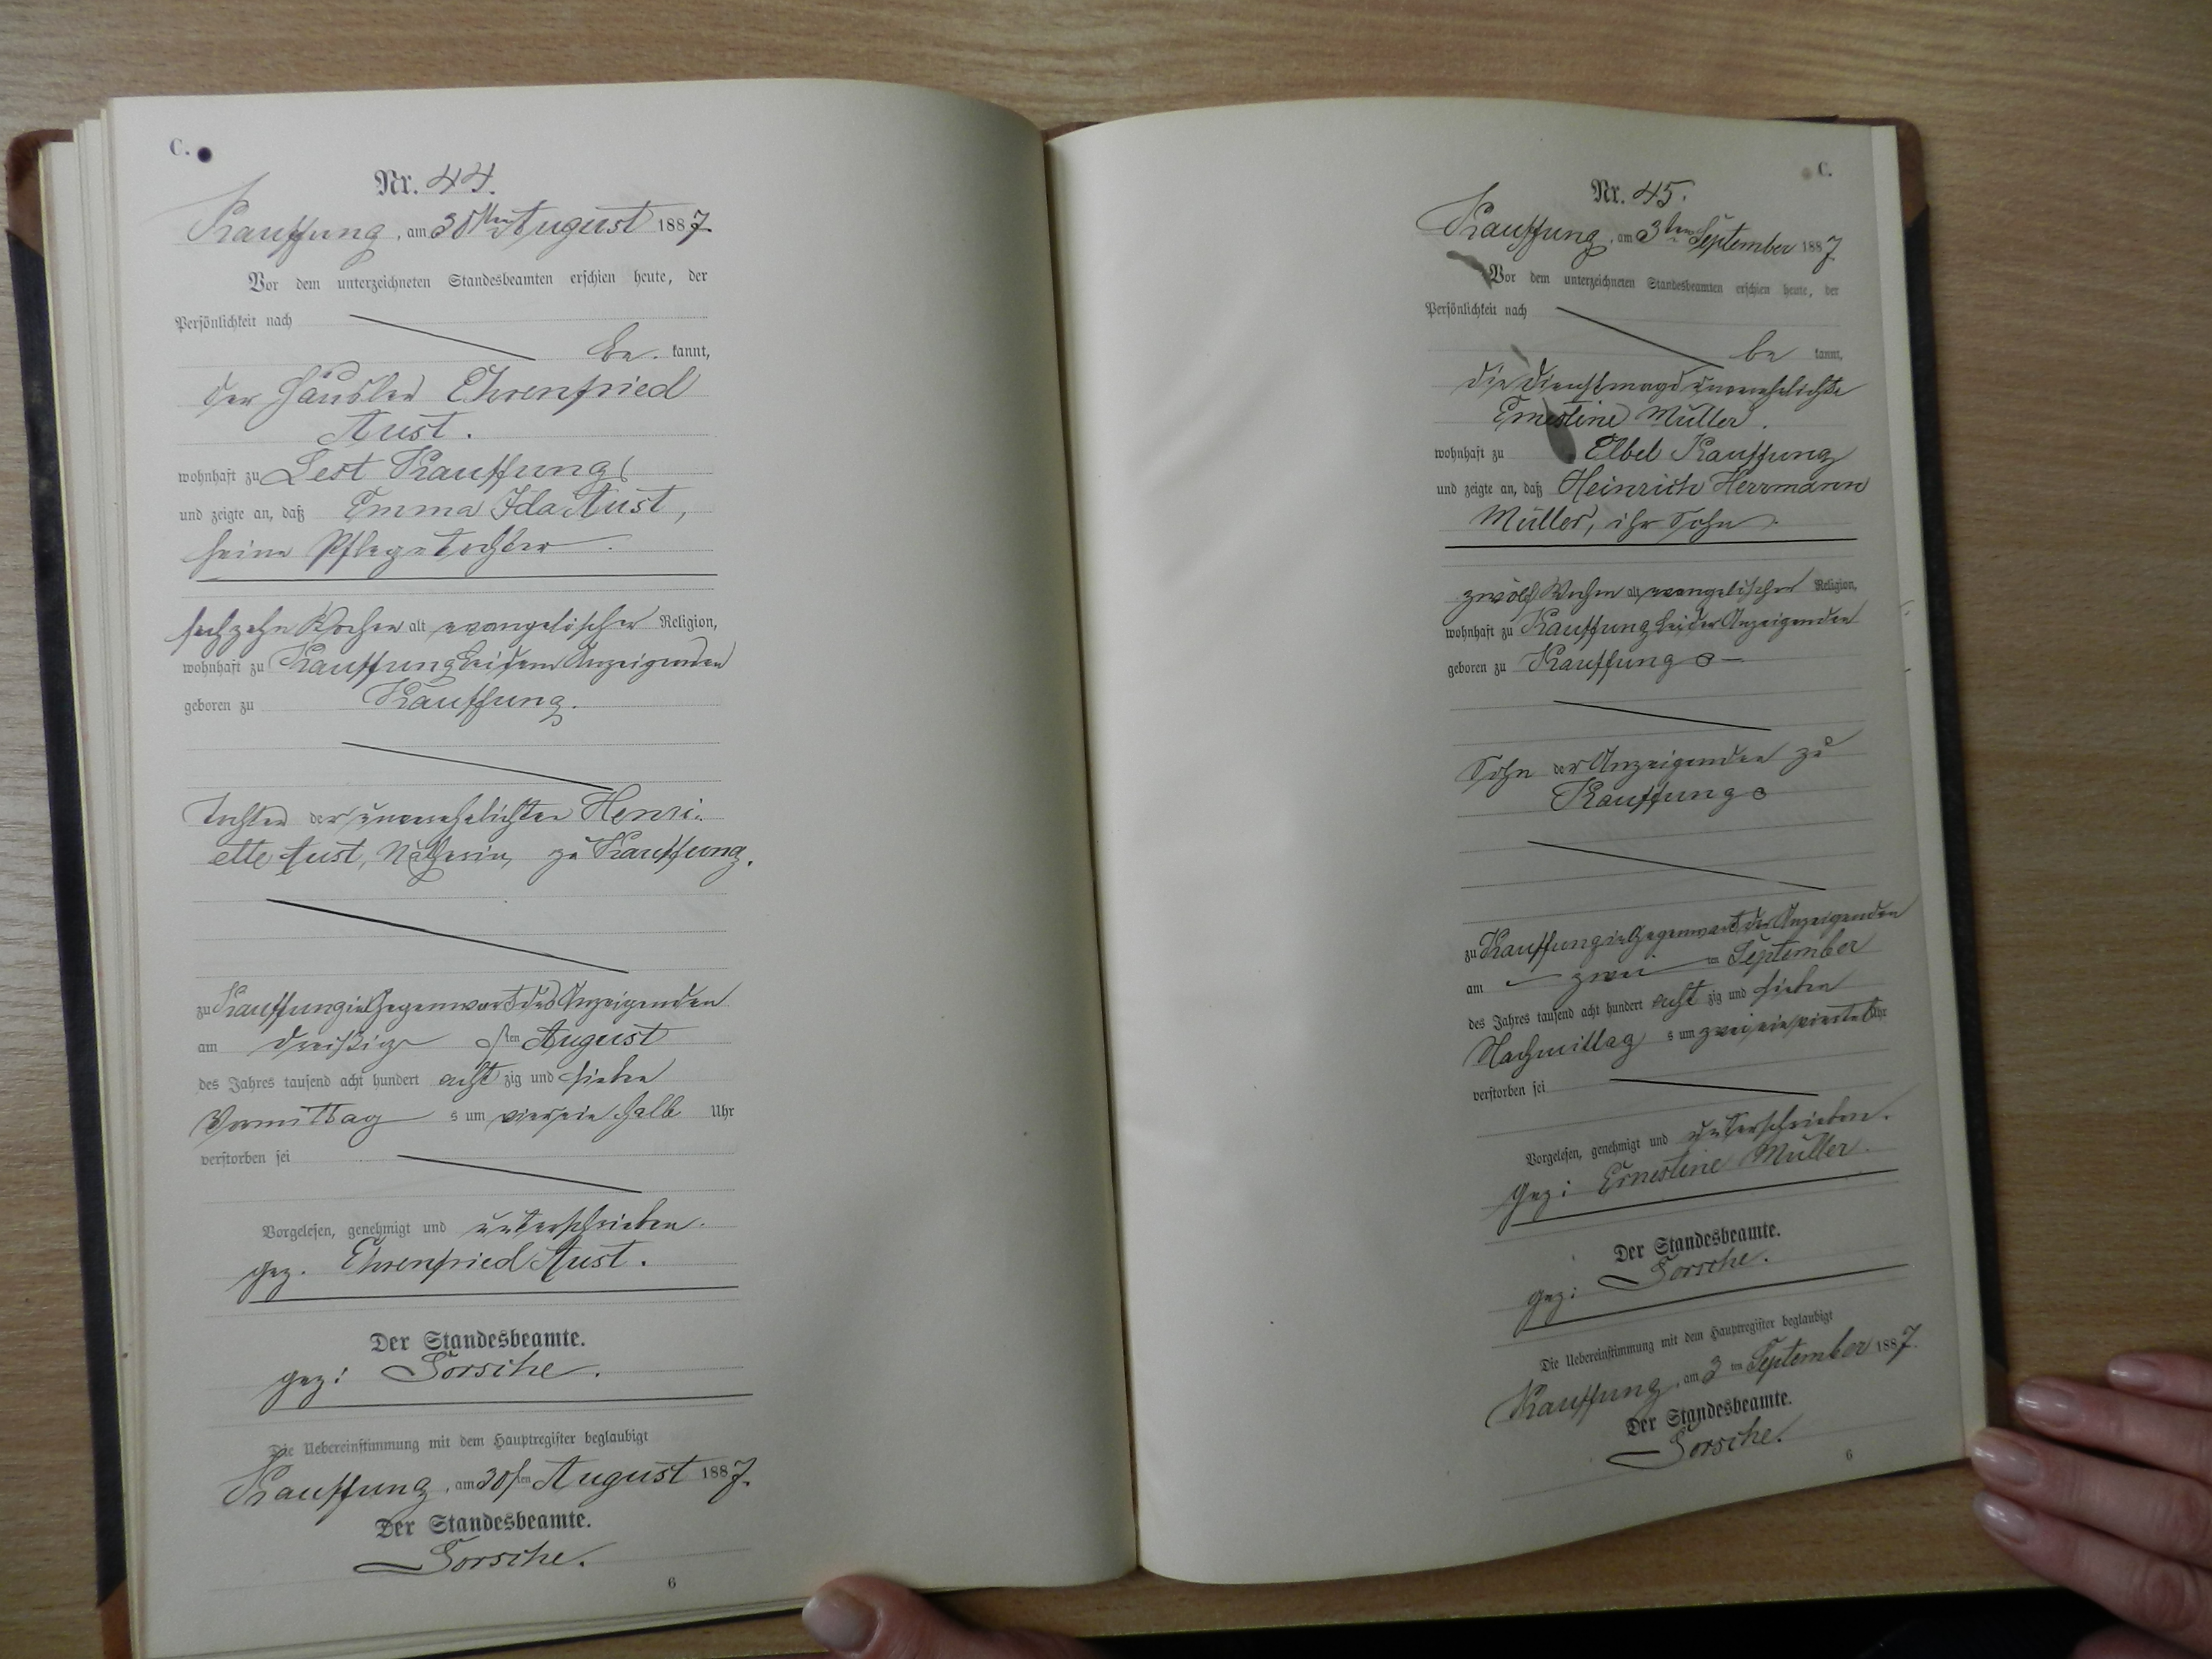 C.
Nr. 44.
Kauffung, am 30sten August 1887.
Vor dem unterzeichneten Standesbeamten erschien heute, der
Persönlichkeit nach
be kannt,
der Häusler Ehrenfried
Aust.
wohnhaft zu Lest Kauffung
und zeigte an, daß Emma Ida Aust,
seine Pflegetochter.
sechzehn Wochen alt evangelischer Religion,
wohnhaft zu Kauffung bei dem Anzeigenden
geboren zu Kauffung.
Tochter der unverehelichten Henri-
ette Aust, Nätherin, zu Kauffung.
zu Kauffung in Gegenwart des Anzeigenden
am dreißig sten August
des Jahres tausend acht hundert acht zig und sieben
Vormittag s um vier ein halb Uhr
verstorben sei
Vorgelesen, genehmigt und unterschrieben.
gez. Ehrenfried Aust.
Der Standesbeamte.
gez:
Die Uebereinstimmung mit dem Hauptregister beglaubigt
Kauffung, am 30sten August 1887.
Der Standesbeamte.
6
C.
Nr. 45.
Kauffung, am 3ten September 1887
Vor dem unterzeichneten Standesbeamten erschien heute, der
Persönlichkeit nach
be kannt,
die Dienstmagd unverehelichte
Ernestine Müller.
wohnhaft zu Elbel Kauffung
und zeigte an, daß Heinrich Herrmann
Müller, ihr Sohn.
zwölf Wochen alt, evangelischer Religion,
wohnhaft zu Kauffung bei der Anzeigenden
geboren zu Kauffung
Sohn der Anzeigenden zu
Kauffung
zu Kauffung in Gegenwart der Anzeigenden
am zwei ten September
des Jahres tausend acht hundert acht zig und sieben
Nachmittag s um zwei ein viertel Uhr
verstorben sei
Vorgelesen, genehmigt und unterschrieben.
gez: Ernestine Müller.
Der Standesbeamte.
gez:
Die Uebereinstimmung mit dem Hauptregister beglaubigt
Kauffung, am 3 ten September 1887.
Der Standesbeamte.
6